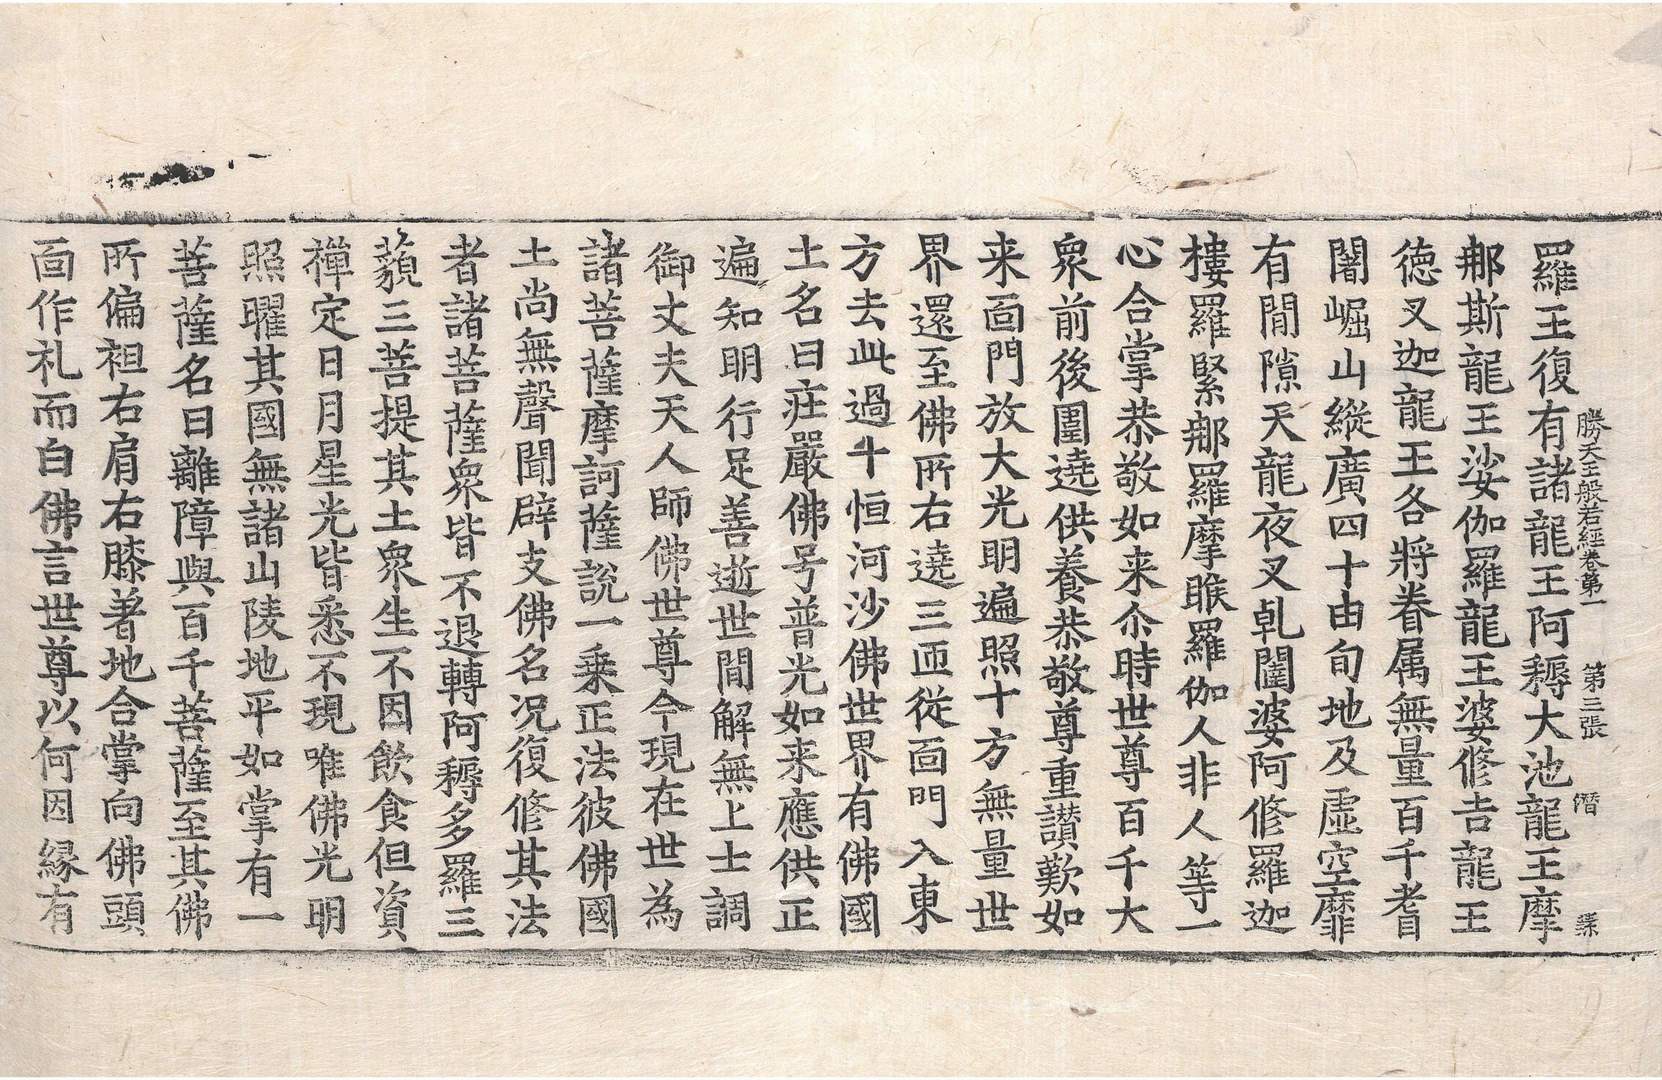 勝天王般若經卷第一　第三張　潛　㳟
羅王復有諸龍王阿耨大池龍王摩
那斯龍王娑伽羅龍王婆修吉龍王
德叉迦龍王各將眷属無量百千耆
闍崛山縱廣四十由旬地及虛空靡
有間隙天龍夜叉乹闥婆阿修羅迦
樓羅緊那羅摩睺羅伽人非人等一
心合掌恭敬如来尒時世尊百千大
衆前後圍遶供養恭敬尊重讃歎如
来面門放大光明遍照十方無量世
界還至佛所右遶三匝從面門入東
方去此過十恒河沙佛世界有佛國
土名曰莊嚴佛号普光如来應供正
遍知明行足善逝世間解無上士調
御丈夫天人師佛世尊今現在世為
諸菩薩摩訶薩說一乗正法彼佛國
土尚無聲聞辟支佛名况復修其法
者諸菩薩衆皆不退轉阿耨多羅三
藐三菩提其土衆生不因飲食但資
禪定日月星光皆悉不現唯佛光明
照曜其國無諸山陵地平如掌有一
菩薩名曰離障與百千菩薩至其佛
所偏袒右肩右膝著地合掌向佛頭
面作礼而白佛言世尊以何因緣有